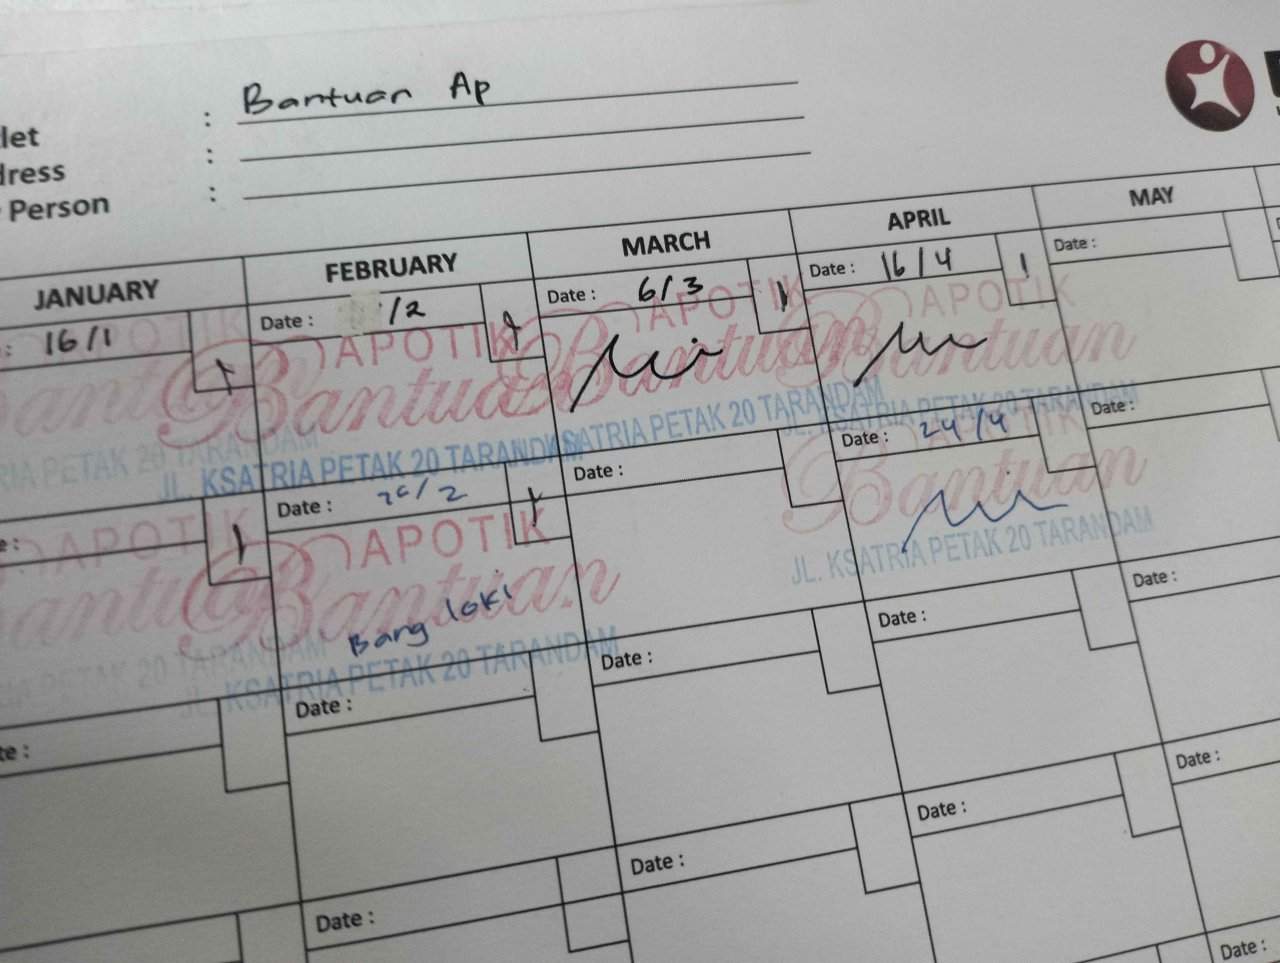 let : Bantuan Ap
dress :
Person :
JANUARY FEBRUARY MARCH APRIL MAY
: 16/1 Date : /2 Date : 6/3 Date : 16/4 Date :
APOTIK APOTIK APOTIK
Bantuan Bantuan Bantuan
JL. KSATRIA PETAK 20 TARANDAM
e : Date : /2 Date : Date : 24/4 Date :
APOTIK APOTIK
Bantuan Bantuan
Bang loki
JL. KSATRIA PETAK 20 TARANDAM JL. KSATRIA PETAK 20 TARANDAM
te : Date : Date : Date : Date :
Date : Date : Date : Date :
Date :